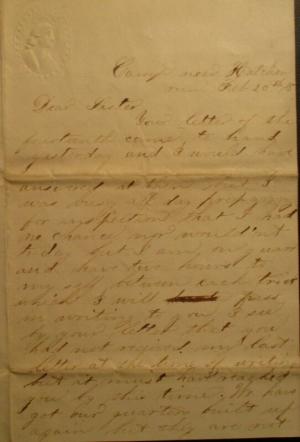 Camp near Hatcher
run Feb 20th 65
Dear Sister
Your letter of the
fourteenth came to hand
yesterday and I would have
answered at then but I
was busy all day prepairing
for inspection that I had
no chance nor wouldnt
today but I am on guard
and have two hours to
my self between each trick
which I will pass
in writing to you I see
by your letter that you
had not received my last
letter at the time of writing
but it must have reached
you by this time We have
got our quarters built up
again but they are not